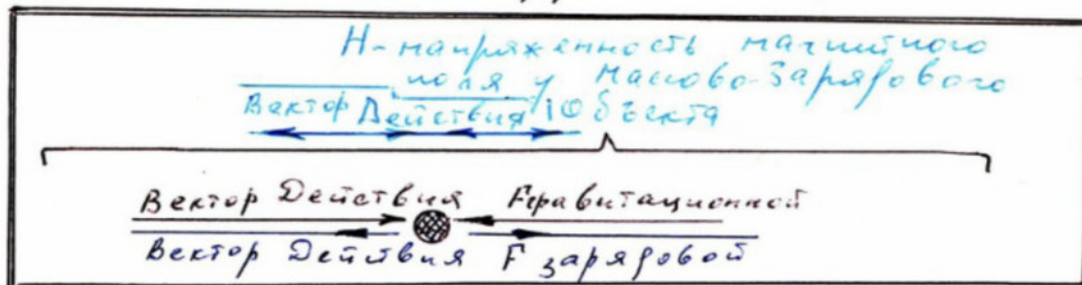 H-напряженность магнитного
поля у Массово-Зарядового
Вектор Действия Объекта
Вектор Действия Fгравитационной
Вектор Действия F зарядовой